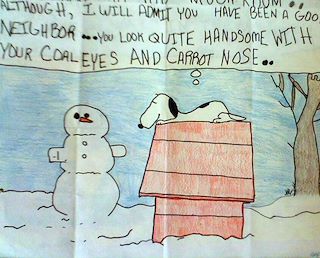 ALTHOUGH, I WILL ADMIT YOU HAVE BEEN A GOO
NEIGHBOR...YOU LOOK QUITE HANDSOME WITH
YOUR COAL EYES AND CARROT NOSE..